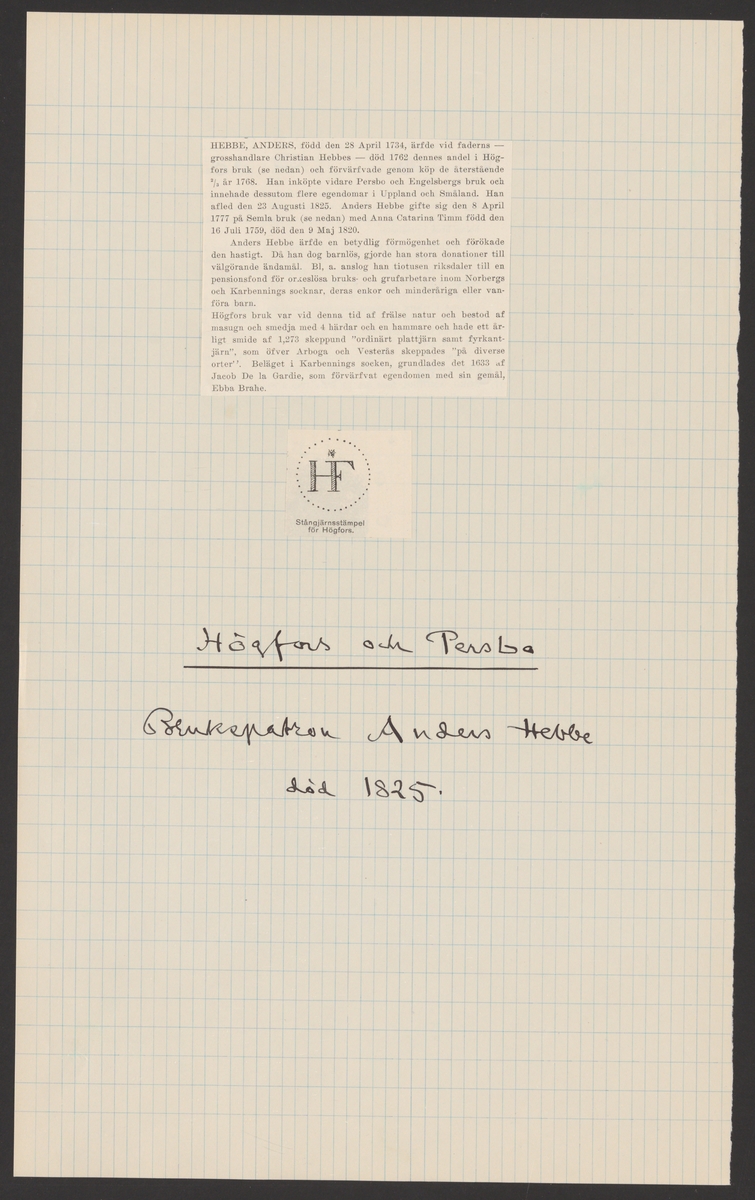 HEBBE, ANDERS, född den 28 April 1734, ärfde vid faderns —
grosshandlare Christian Hebbes — död 1762 dennes andel i Hög-
fors bruk (se nedan) och förvärfvade genom köp de återstående
²/₃ år 1768. Han inköpte vidare Persbo och Engelsbergs bruk och
innehade dessutom flere egendomar i Uppland och Småland. Han
afled den 23 Augusti 1825. Anders Hebbe gifte sig den 8 April
1777 på Semla bruk (se nedan) med Anna Catarina Timm född den
16 Juli 1759, död den 9 Maj 1820.
Anders Hebbe ärfde en betydlig förmögenhet och förökade
den hastigt. Då han dog barnlös, gjorde han stora donationer till
välgörande ändamål. Bl, a. anslog han tiotusen riksdaler till en
pensionsfond för orkeslösa bruks- och grufarbetare inom Norbergs
och Karbennings socknar, deras enkor och minderåriga eller van-
föra barn.
Högfors bruk var vid denna tid af frälse natur och bestod af
masugn och smedja med 4 härdar och en hammare och hade ett år-
ligt smide af 1,273 skeppund "ordinärt plattjärn samt fyrkant-
järn", som öfver Arboga och Vesterås skeppades "på diverse
orter". Beläget i Karbennings socken, grundlades det 1633 af
Jacob De la Gardie, som förvärfvat egendomen med sin gemål,
Ebba Brahe.
HF
Stångjärnsstämpel
för Högfors.
Högfors och Persbo
Brukspatron Anders Hebbe
död 1825.